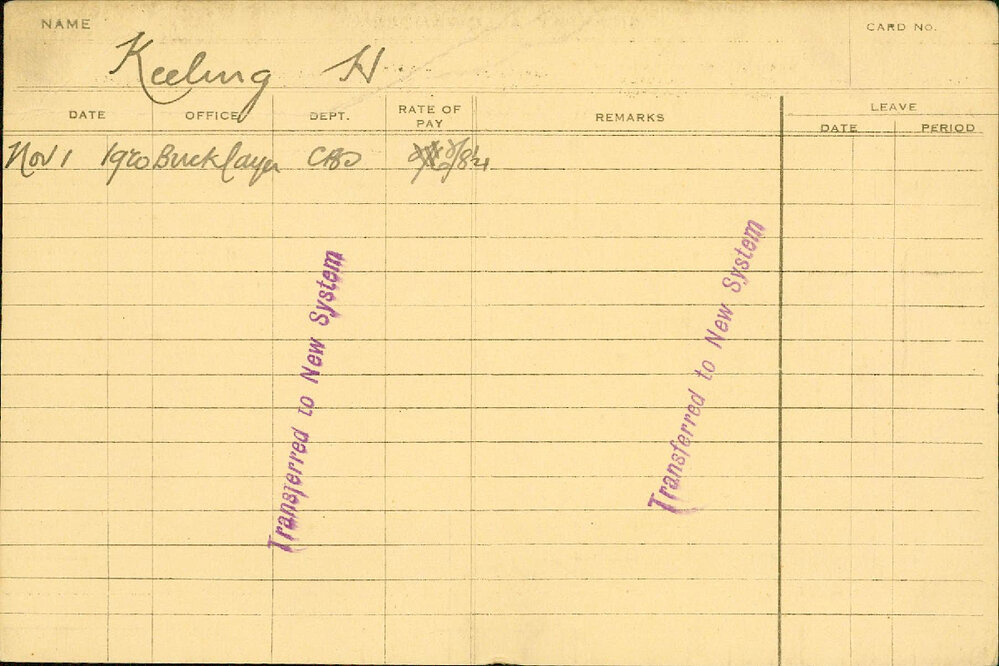 NAME
CARD NO.
Keeling H.
DATE OFFICE DEPT. RATE OF PAY REMARKS LEAVE
DATE PERIOD
Nov 1 1920 Bricklayer CBD
Transferred to New System
Transferred to New System